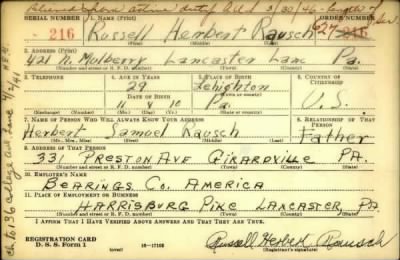 active duty 3/30/46 - length of Ser.
SERIAL NUMBER 1. NAME (Print) 627
216 Russell Herbert Rausch 216
(First) (Middle) (Last)
2. ADDRESS (Print)
421 N. Mulberry Lancaster Lanc Pa.
(Number and street or R. F. D. number) (Town) (County) (State)
3. TELEPHONE 4. AGE IN YEARS 5. PLACE OF BIRTH 6. COUNTRY OF CITIZENSHIP
29 Lehighton
DATE OF BIRTH
11 8 10 Pa. U.S.
(Mo.) (Day) (Yr.) (State or country)
7. NAME OF PERSON WHO WILL ALWAYS KNOW YOUR ADDRESS 8. RELATIONSHIP OF THAT PERSON
Herbert Samuel Rausch Father
(Mr., Mrs., Miss) (First) (Middle) (Last)
9. ADDRESS OF THAT PERSON
331 PRESTON AVE GIRARDVILLE PA.
(Number and street or R. F. D. number) (Town) (County) (State)
10. EMPLOYER'S NAME
BEARINGS CO. AMERICA
11. PLACE OF EMPLOYMENT OR BUSINESS
HARRISBURG PIKE LANCASTER, PA
(Number and street or R. F. D. number) (Town) (County) (State)
I AFFIRM THAT I HAVE VERIFIED ABOVE ANSWERS AND THAT THEY ARE TRUE.
REGISTRATION CARD
D. S. S. Form 1 16-17105 Russell Herbert Rausch
(Registrant's signature)